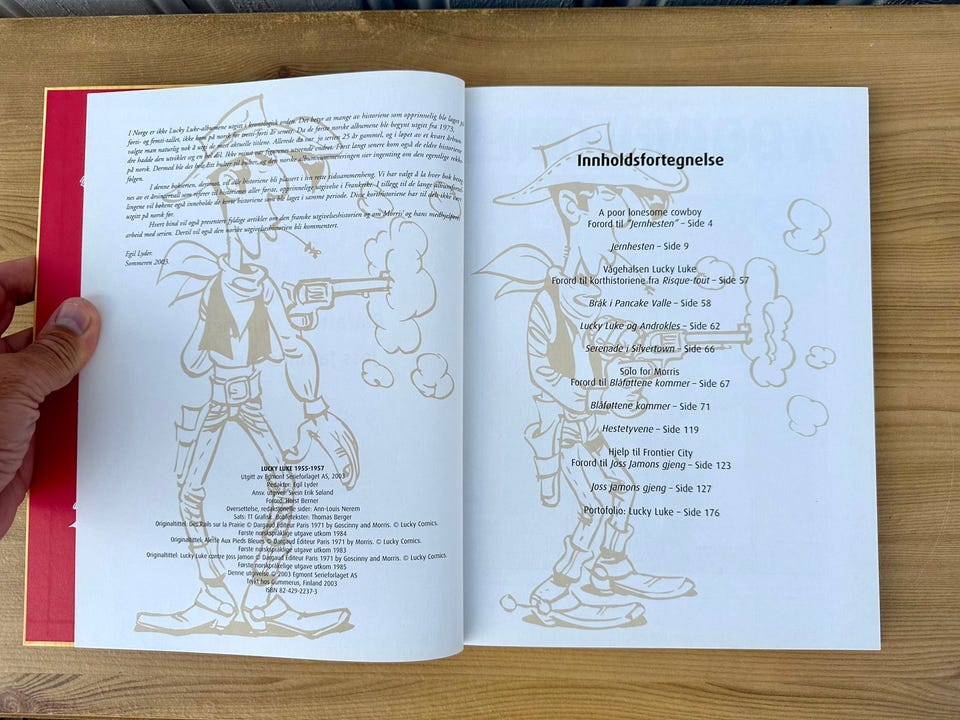 I Norge er ikke Lucky Luke-albumene utgitt i kronologisk orden. Det betyr at mange av historiene som opprinnelig ble laget på
førti- og femti-tallet, ikke kom på norsk før tretti-førti år senere. Da de første norske albumene ble begynt utgitt fra 1973,
valgte man naturlig nok å utgi de mest aktuelle titlene. Allerede da var jo serien 25 år gammel, og i løpet av et kvart århun-
dre hadde den utviklet seg en hel del. Ikke minst var figurenes utseende endret. Først langt senere kom også de eldre historiene
på norsk. Dermed ble det helt litt hulter til bulter, og den norske albumnummereringen sier ingenting om den egentlige rekke-
følgen.
I denne bokserien, derimot, vil alle historiene bli plassert i sin rette tidssammenheng. Vi har valgt å la hver bok beteg-
nes av et årsintervall som refererer til historienes aller første, opprinnelige utgivelse i Frankrike. I tillegg til de lange albumfortel-
lingene vil bøkene også inneholde de korte historiene som ble laget i samme periode. Disse korthistoriene har til dels ikke vært
utgitt på norsk før.
Hvert bind vil også presentere fyldige artikler om den franske utgivelseshistorien og om Morris' og hans medhjelperes
arbeid med serien. Dertil vil også den norske utgivelseshistorien bli kommentert.
Egil Lyder.
Sommeren 2003.
LUCKY LUKE 1955-1957
Utgitt av Egmont Serieforlaget AS, 2003
Redaktør: Egil Lyder
Ansv. utgiver: Svein Erik Søland
Forord: Horst Berner
Oversettelse, redaksjonelle sider: Ann-Louis Nerem
Sats: TT Grafisk. Bobletekster: Thomas Berger
Originaltittel: Des Rails sur la Prairie © Dargaud Editeur Paris 1971 by Goscinny and Morris. © Lucky Comics.
Første norskpråklige utgave utkom 1984
Originaltittel: Alerte Aux Pieds Bleues © Dargaud Editeur Paris 1971 by Goscinny and Morris. © Lucky Comics.
Første norskpråklige utgave utkom 1983
Originaltittel: Lucky Luke contre Joss Jamon © Dargaud Editeur Paris 1971 by Goscinny and Morris. © Lucky Comics.
Første norskpråklige utgave utkom 1985
Denne utgivelse © 2003 Egmont Serieforlaget AS
Trykt hos Gummerus, Finland 2003
ISBN 82-429-2237-3
Innholdsfortegnelse
A poor lonesome cowboy
Forord til "Jernhesten" – Side 4
Jernhesten – Side 9
Vågehalsen Lucky Luke
Forord til korthistoriene fra Risque-tout – Side 57
Bråk i Pancake Valle – Side 58
Lucky Luke og Androkles – Side 62
Serenade i Silvertown – Side 66
Solo for Morris
Forord til Blåføttene kommer – Side 67
Blåføttene kommer – Side 71
Hestetyvene – Side 119
Hjelp til Frontier City
Forord til Joss Jamons gjeng – Side 123
Joss Jamons gjeng – Side 127
Portofolio: Lucky Luke – Side 176